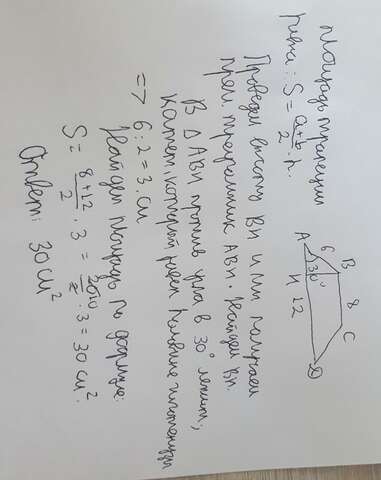 Площадь трапеции
равна: S = a+b/2 · h.
Проведем высоту BH и мы получаем
прям. треугольник ABH. Найдем BH.
В Δ ABH против угла в 30° лежит,
катет, который равен половине гипотенузы
=> 6:2 = 3 см
Найдем площадь по формуле:
S = 8+12/2 · 3 = 20/2 · 3 = 30 см².
Ответ: 30 см²
B 8 C
6
A 30° H 12 D